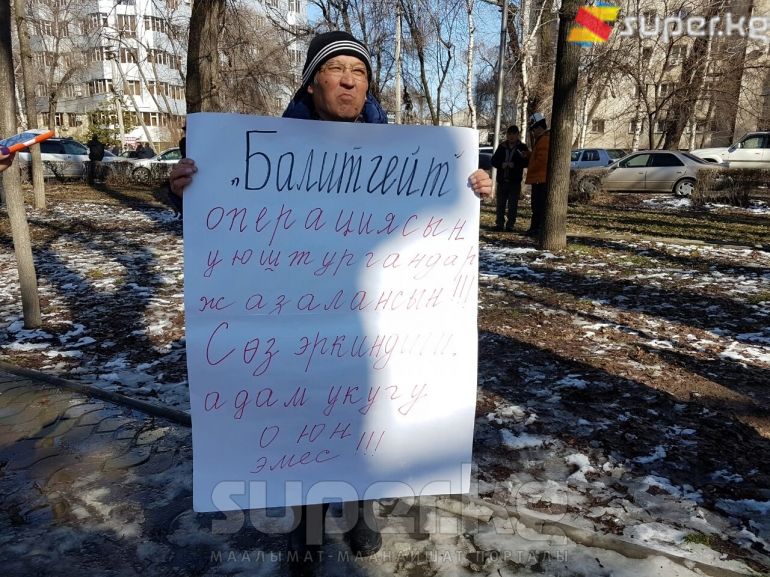 super.kg
„Балитгейт"
операциясын
уюштургандар
жазалансын!!!
Сөз эркиндиги,
адам укугу
оюн
эмес!!!
super.kg
МААЛЫМАТ-МААНАЙШАТ ПОРТАЛЫ